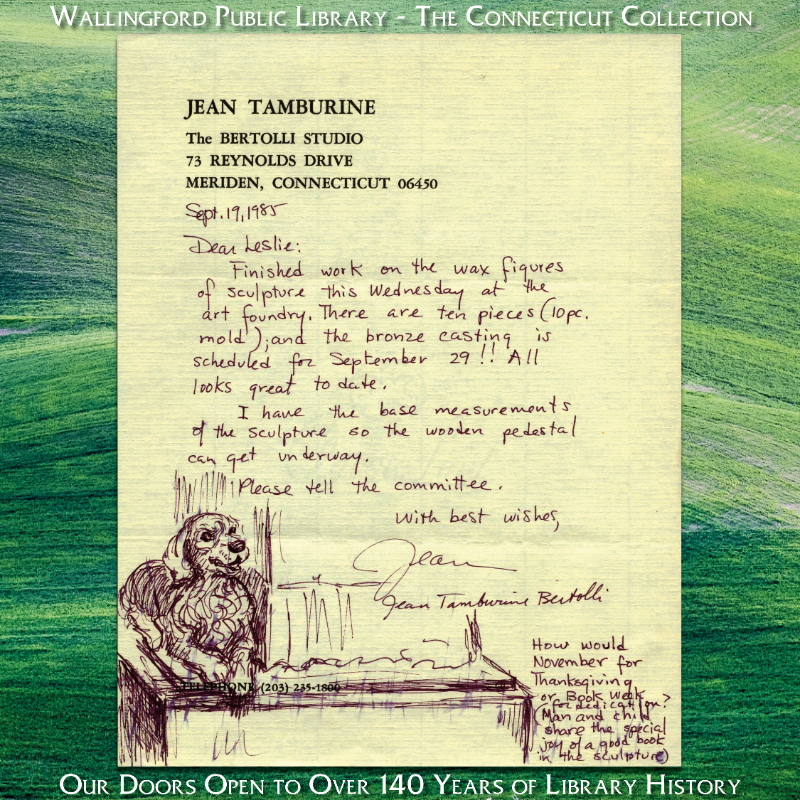 Wallingford Public Library - The Connecticut Collection
JEAN TAMBURINE
The BERTOLLI STUDIO
73 REYNOLDS DRIVE
MERIDEN, CONNECTICUT 06450
Sept. 19, 1985
Dear Leslie:
Finished work on the wax figures
of sculpture this Wednesday at the
art foundry. There are ten pieces (10 pc.
mold); and the bronze casting is
scheduled for September 29!! All
looks great to date.
I have the base measurements
of the sculpture so the wooden pedestal
can get underway.
Please tell the committee.
With best wishes,
Jean
Jean Tamburine Bertolli
How would
November for
Thanksgiving
or Book Week
for dedication?
(Man and child
share the special
joy of a good book
in the sculpture)
TELEPHONE (203) 235-1800
Our Doors Open to Over 140 Years of Library History